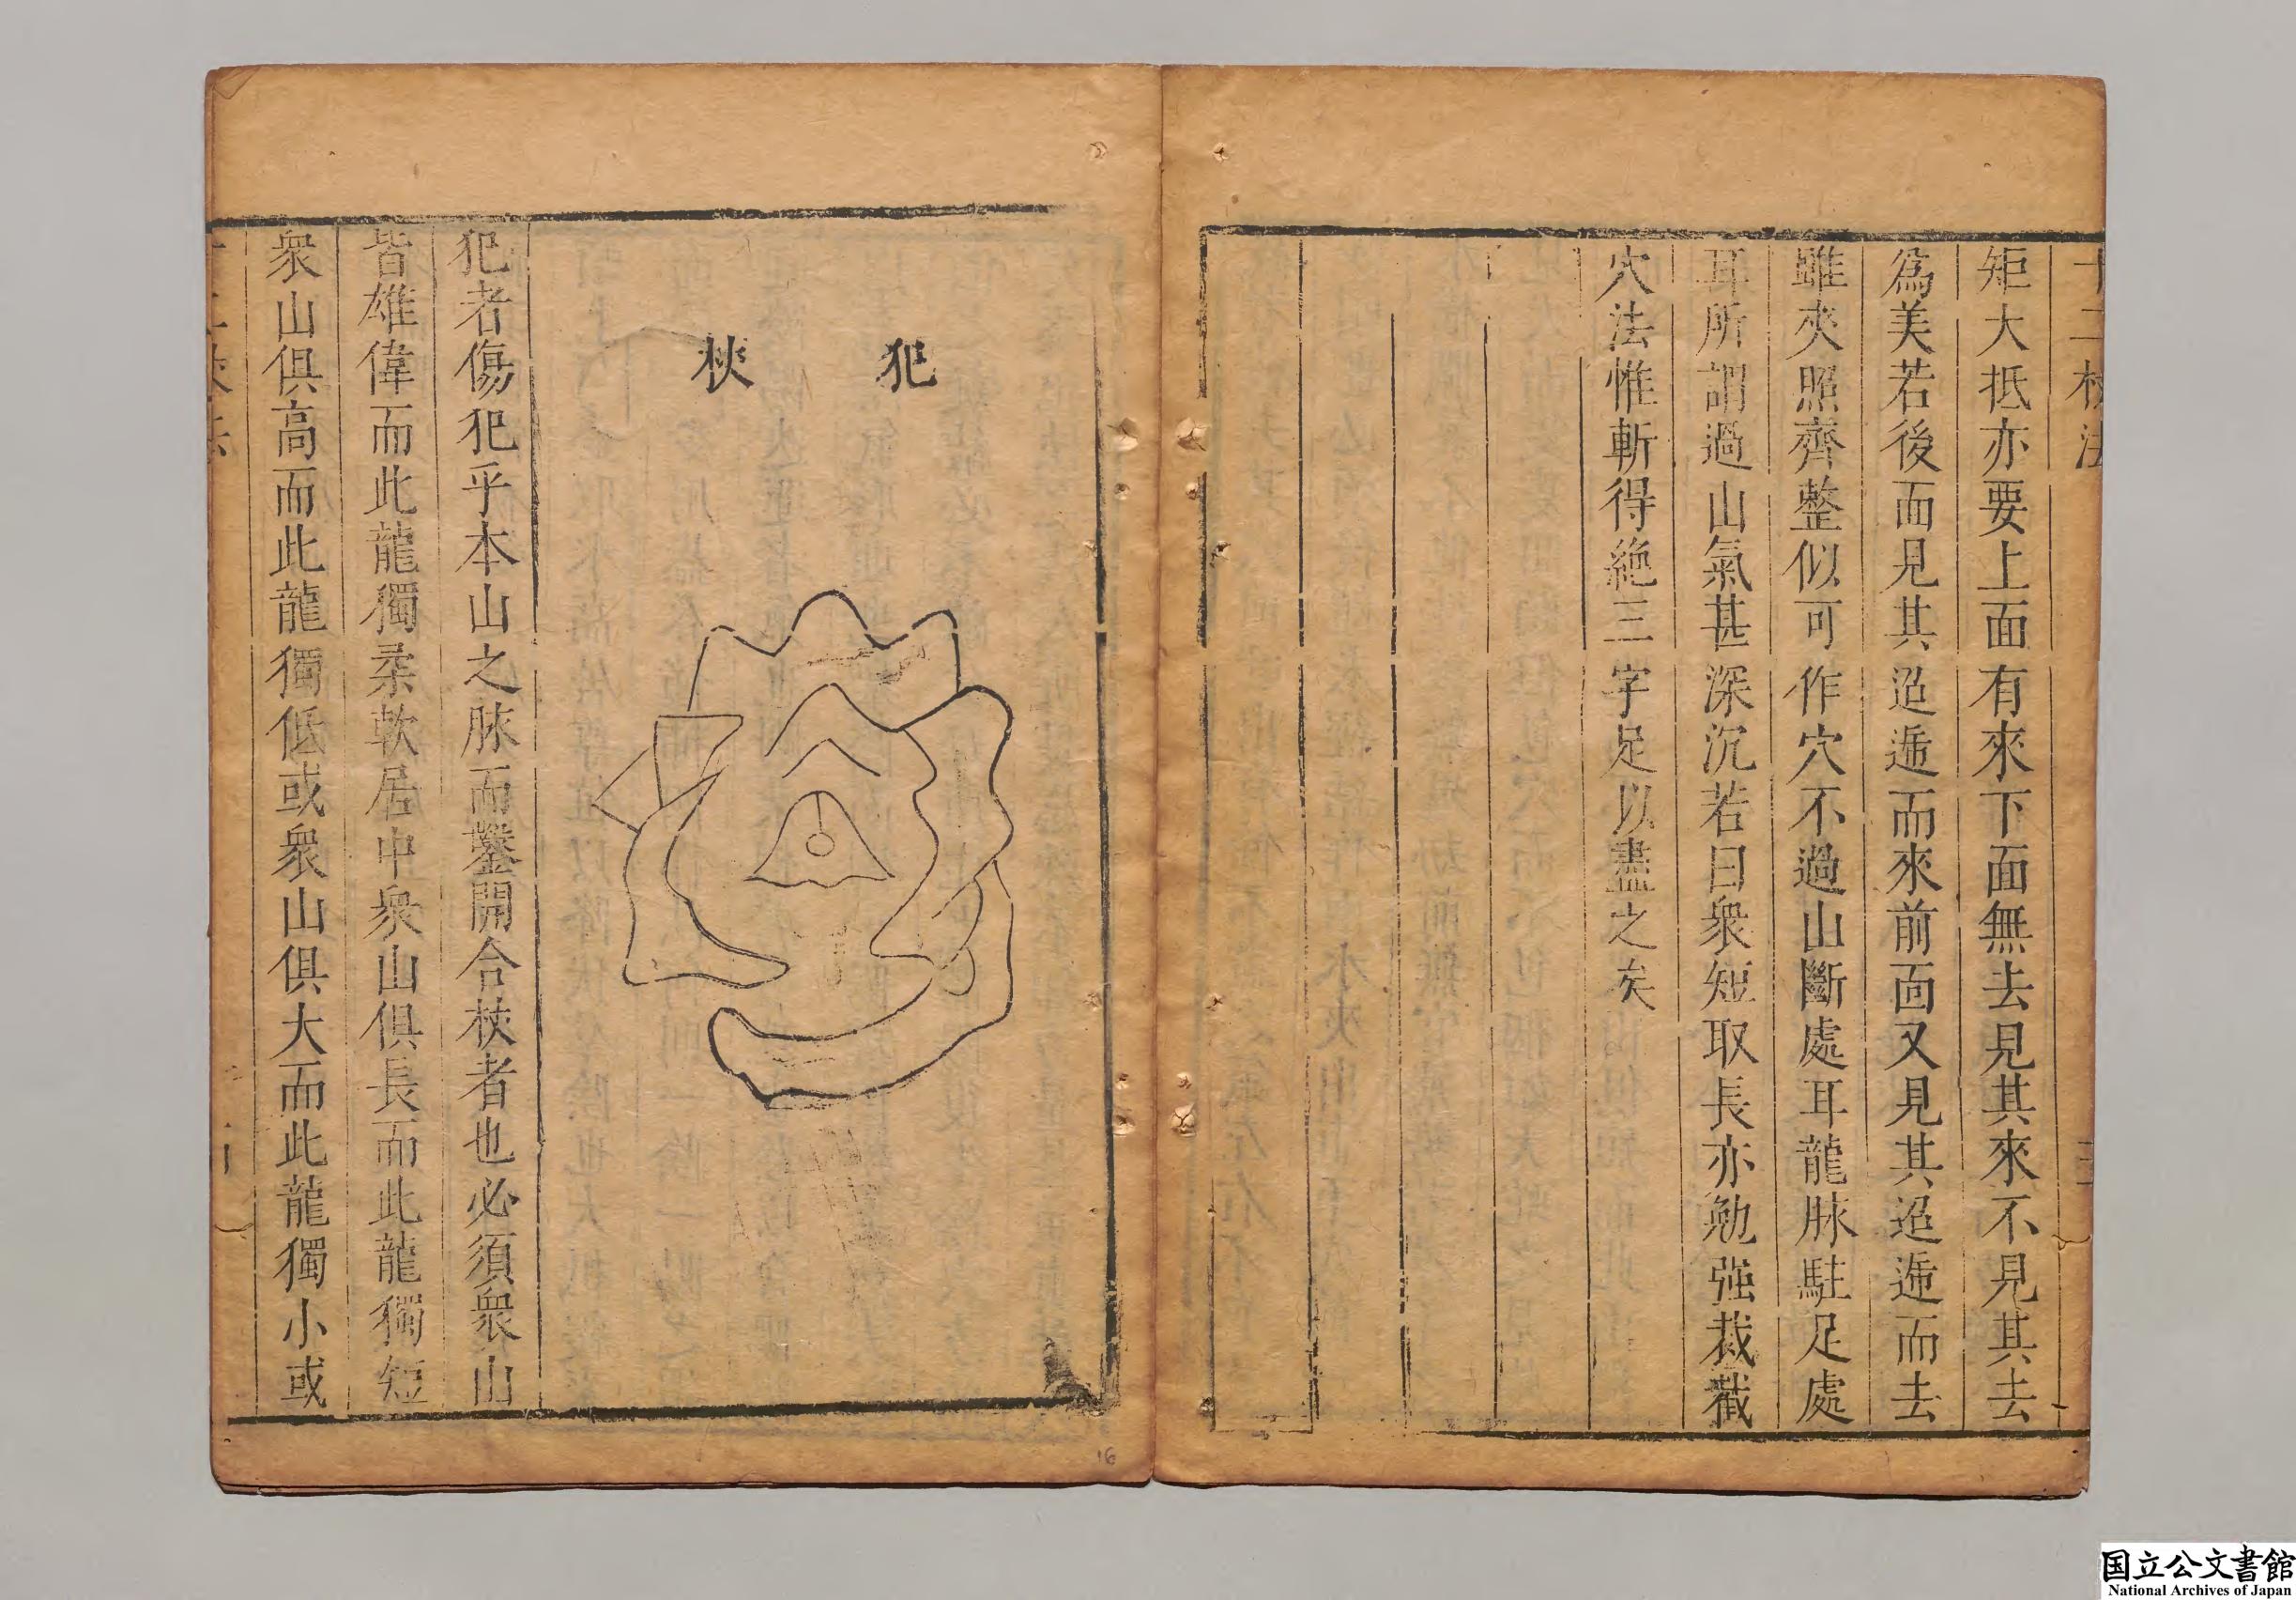 十二杖法
三
矩大抵亦要上面有來下面無去見其來不見其去
為美若後面見其迢遞而來前面又見其迢遞而去
雖夾照齊整似可作穴不過山斷處耳龍脉駐足處
耳所謂過山氣甚深沉若曰衆短取長亦勉强裁截
穴法惟斬得絶三字足以盡之矣
犯　杖
犯者傷犯乎本山之脉而鑿開合杖者也必須衆山
皆雄偉而此龍獨柔軟居中衆山俱長而此龍獨短
衆山俱高而此龍獨低或衆山俱大而此龍獨小或
16
国立公文書館
National Archives of Japan